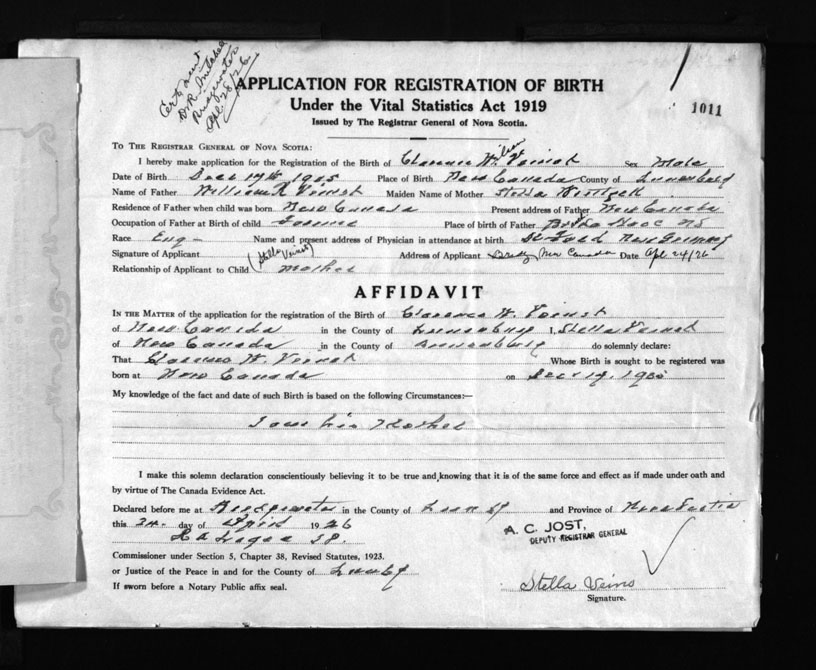 Cert sent
Dr R Mitchell
Bridgewater
Apl 28/26
APPLICATION FOR REGISTRATION OF BIRTH
Under the Vital Statistics Act 1919
Issued by The Registrar General of Nova Scotia.
1011
TO THE REGISTRAR GENERAL OF NOVA SCOTIA:
I hereby make application for the Registration of the Birth of Clarence W. Veinot Sex Male
Date of Birth Dec 17th 1905 Place of Birth New Canada County of Lunenburg
Name of Father William R Veinot Maiden Name of Mother Stella
Residence of Father when child was born New Canada Present address of Father New Canada
Occupation of Father at Birth of child Farmer Place of birth of Father NS
Race Eng - Name and present address of Physician in attendance at birth
Signature of Applicant (Stella Veinot) Address of Applicant New Canada Date Apl 24/26
Relationship of Applicant to Child Mother
AFFIDAVIT
IN THE MATTER of the application for the registration of the Birth of Clarence W. Veinot
of New Canada in the County of Lunenburg I, Stella Veinot
of New Canada in the County of Lunenburg do solemnly declare:
That Clarence W. Veinot Whose Birth is sought to be registered was
born at New Canada on Dec 17, 1905
My knowledge of the fact and date of such Birth is based on the following Circumstances:—
I am his Mother
I make this solemn declaration conscientiously believing it to be true and knowing that it is of the same force and effect as if made under oath and
by virtue of The Canada Evidence Act.
Declared before me at Bridgewater in the County of and Province of Nova Scotia
this 24 day of April 1926
A. C. JOST,
DEPUTY REGISTRAR GENERAL
J P.
Commissioner under Section 5, Chapter 38, Revised Statutes, 1923.
or Justice of the Peace in and for the County of
If sworn before a Notary Public affix seal.
Stella Veino
Signature.